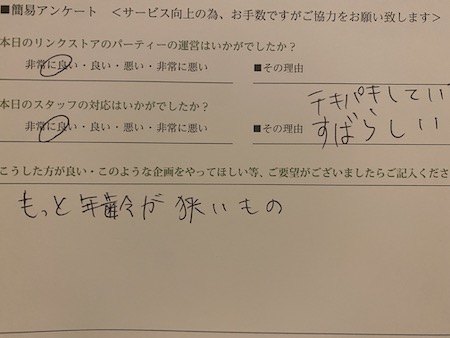 ■簡易アンケート ＜サービス向上の為、お手数ですがご協力をお願い致します＞
本日のリンクストアのパーティーの運営はいかがでしたか？
非常に良い・良い・悪い・非常に悪い ■その理由
本日のスタッフの対応はいかがでしたか？
テキパキしてい
非常に良い・良い・悪い・非常に悪い ■その理由 すばらしい
こうした方が良い・このような企画をやってほしい等、ご要望がございましたらご記入くださ
もっと年齢が狭いもの